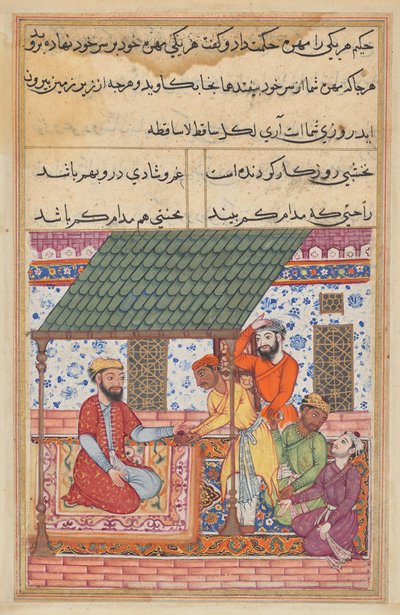 حکیم هر یکی را مهره حکمت داد و گفت هر یکی مهره خود بر سر خود نهاده بروید
هر جا که مهره شما از سر خود بیفتد همانجا بکاوید و هرچه از زیر زمین بیرون
اید روزی شما است آری لکل ساقطه لاساقطه
نخشبی روزکار کردنده است غم و شادی درو بهم باشد
راحتی که مدام کم بیند محنتی هم مدام کم باشد